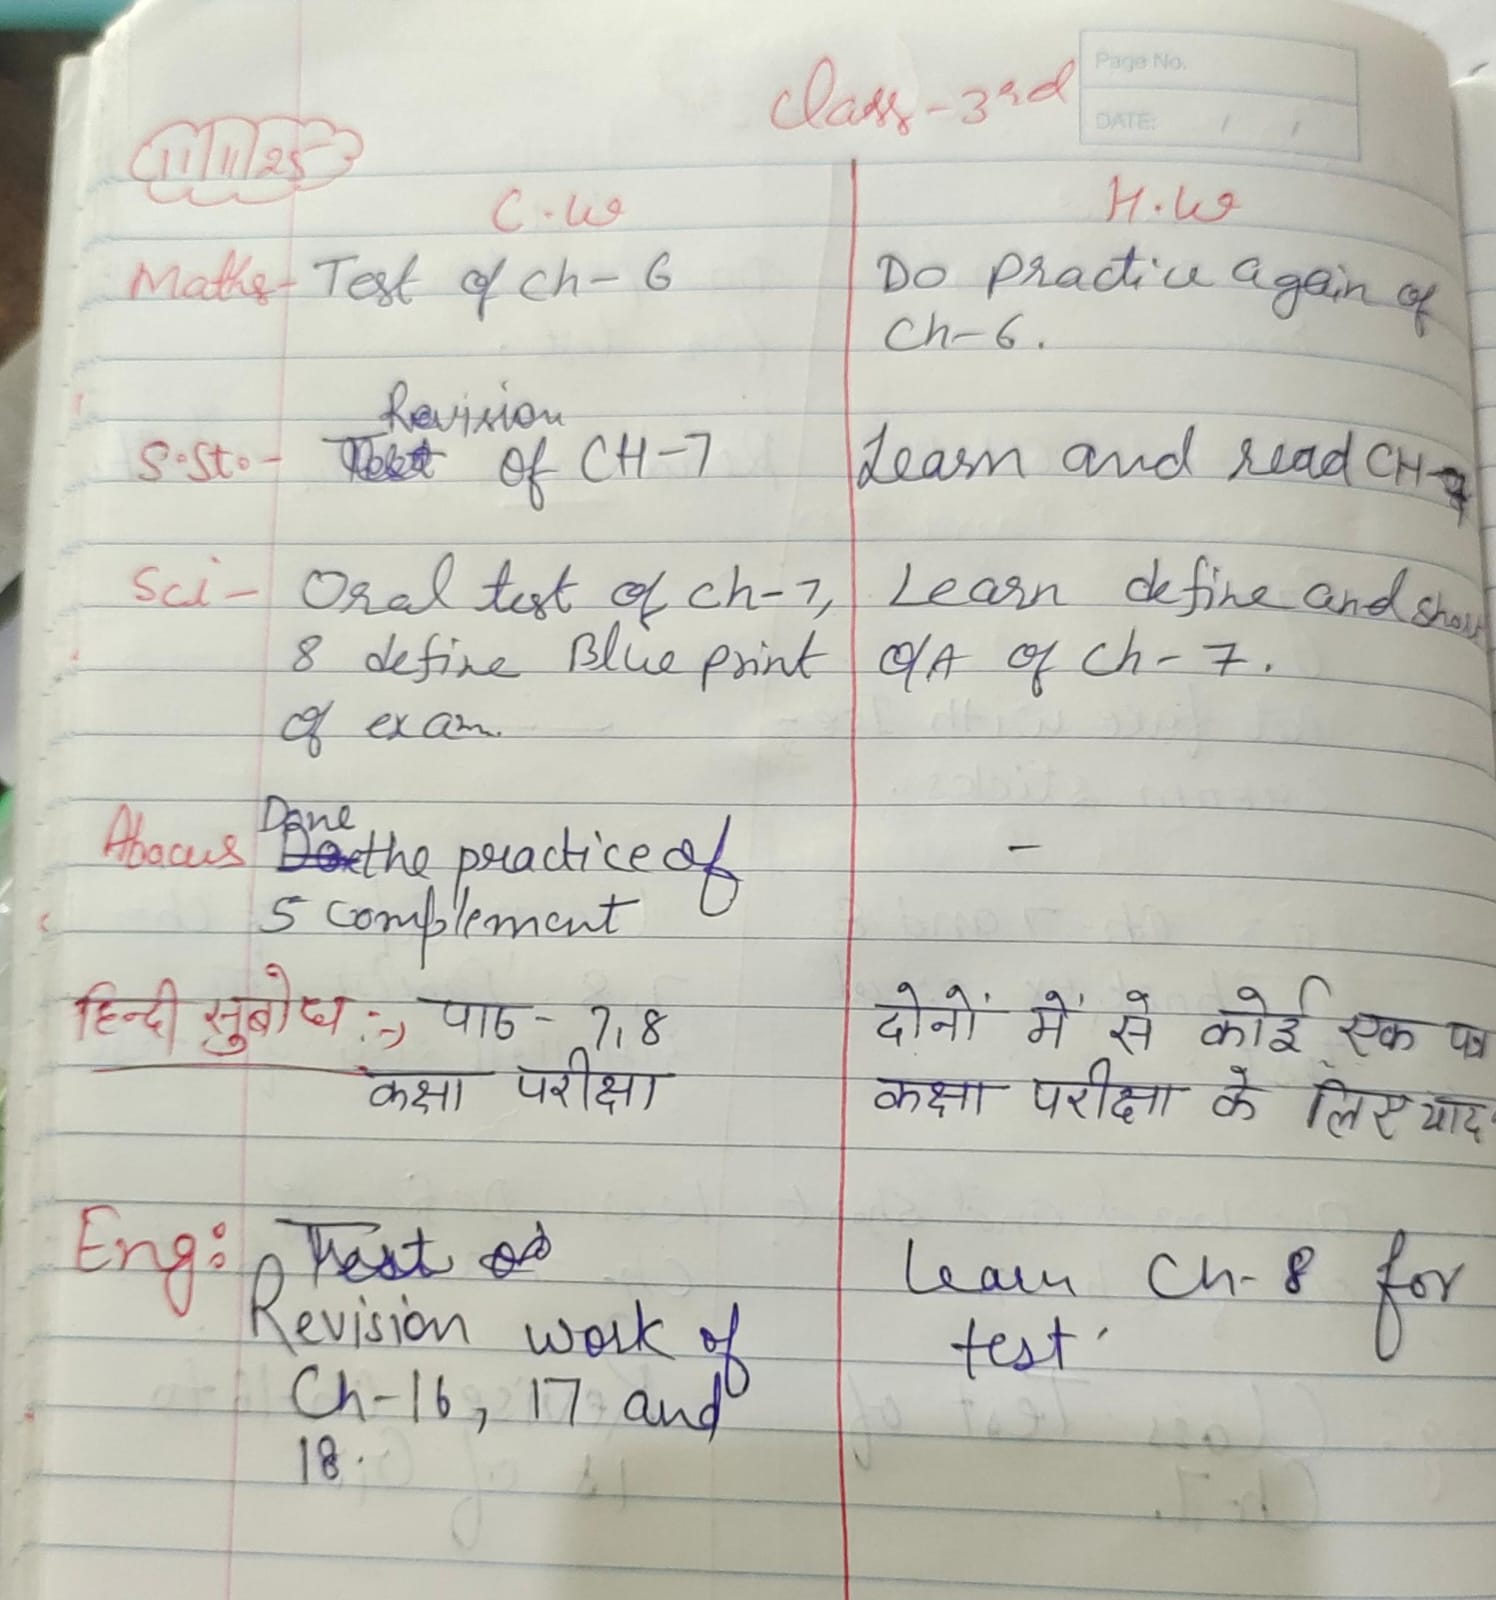 Class - 3rd
Page No.
DATE: / /
11/11/25
C.W
H.W
Maths - Test of ch - 6
Do practice again of
Ch - 6.
Revision
S.St. - of CH - 7
Learn and read CH - 7
Sci - Oral test of ch - 7,
8 define Blue print
of exam.
Learn define and show
Q/A of ch - 7.
Done
Abacus the practice of
5 complement
-
हिन्दी सुबोध :-, पाठ - 7,8
कक्षा परीक्षा
दोनों में से कोई एक पत्र
कक्षा परीक्षा के लिए याद
Eng: Test
Revision work of
Ch - 16, 17 and
18.
Learn Ch - 8 for
test.